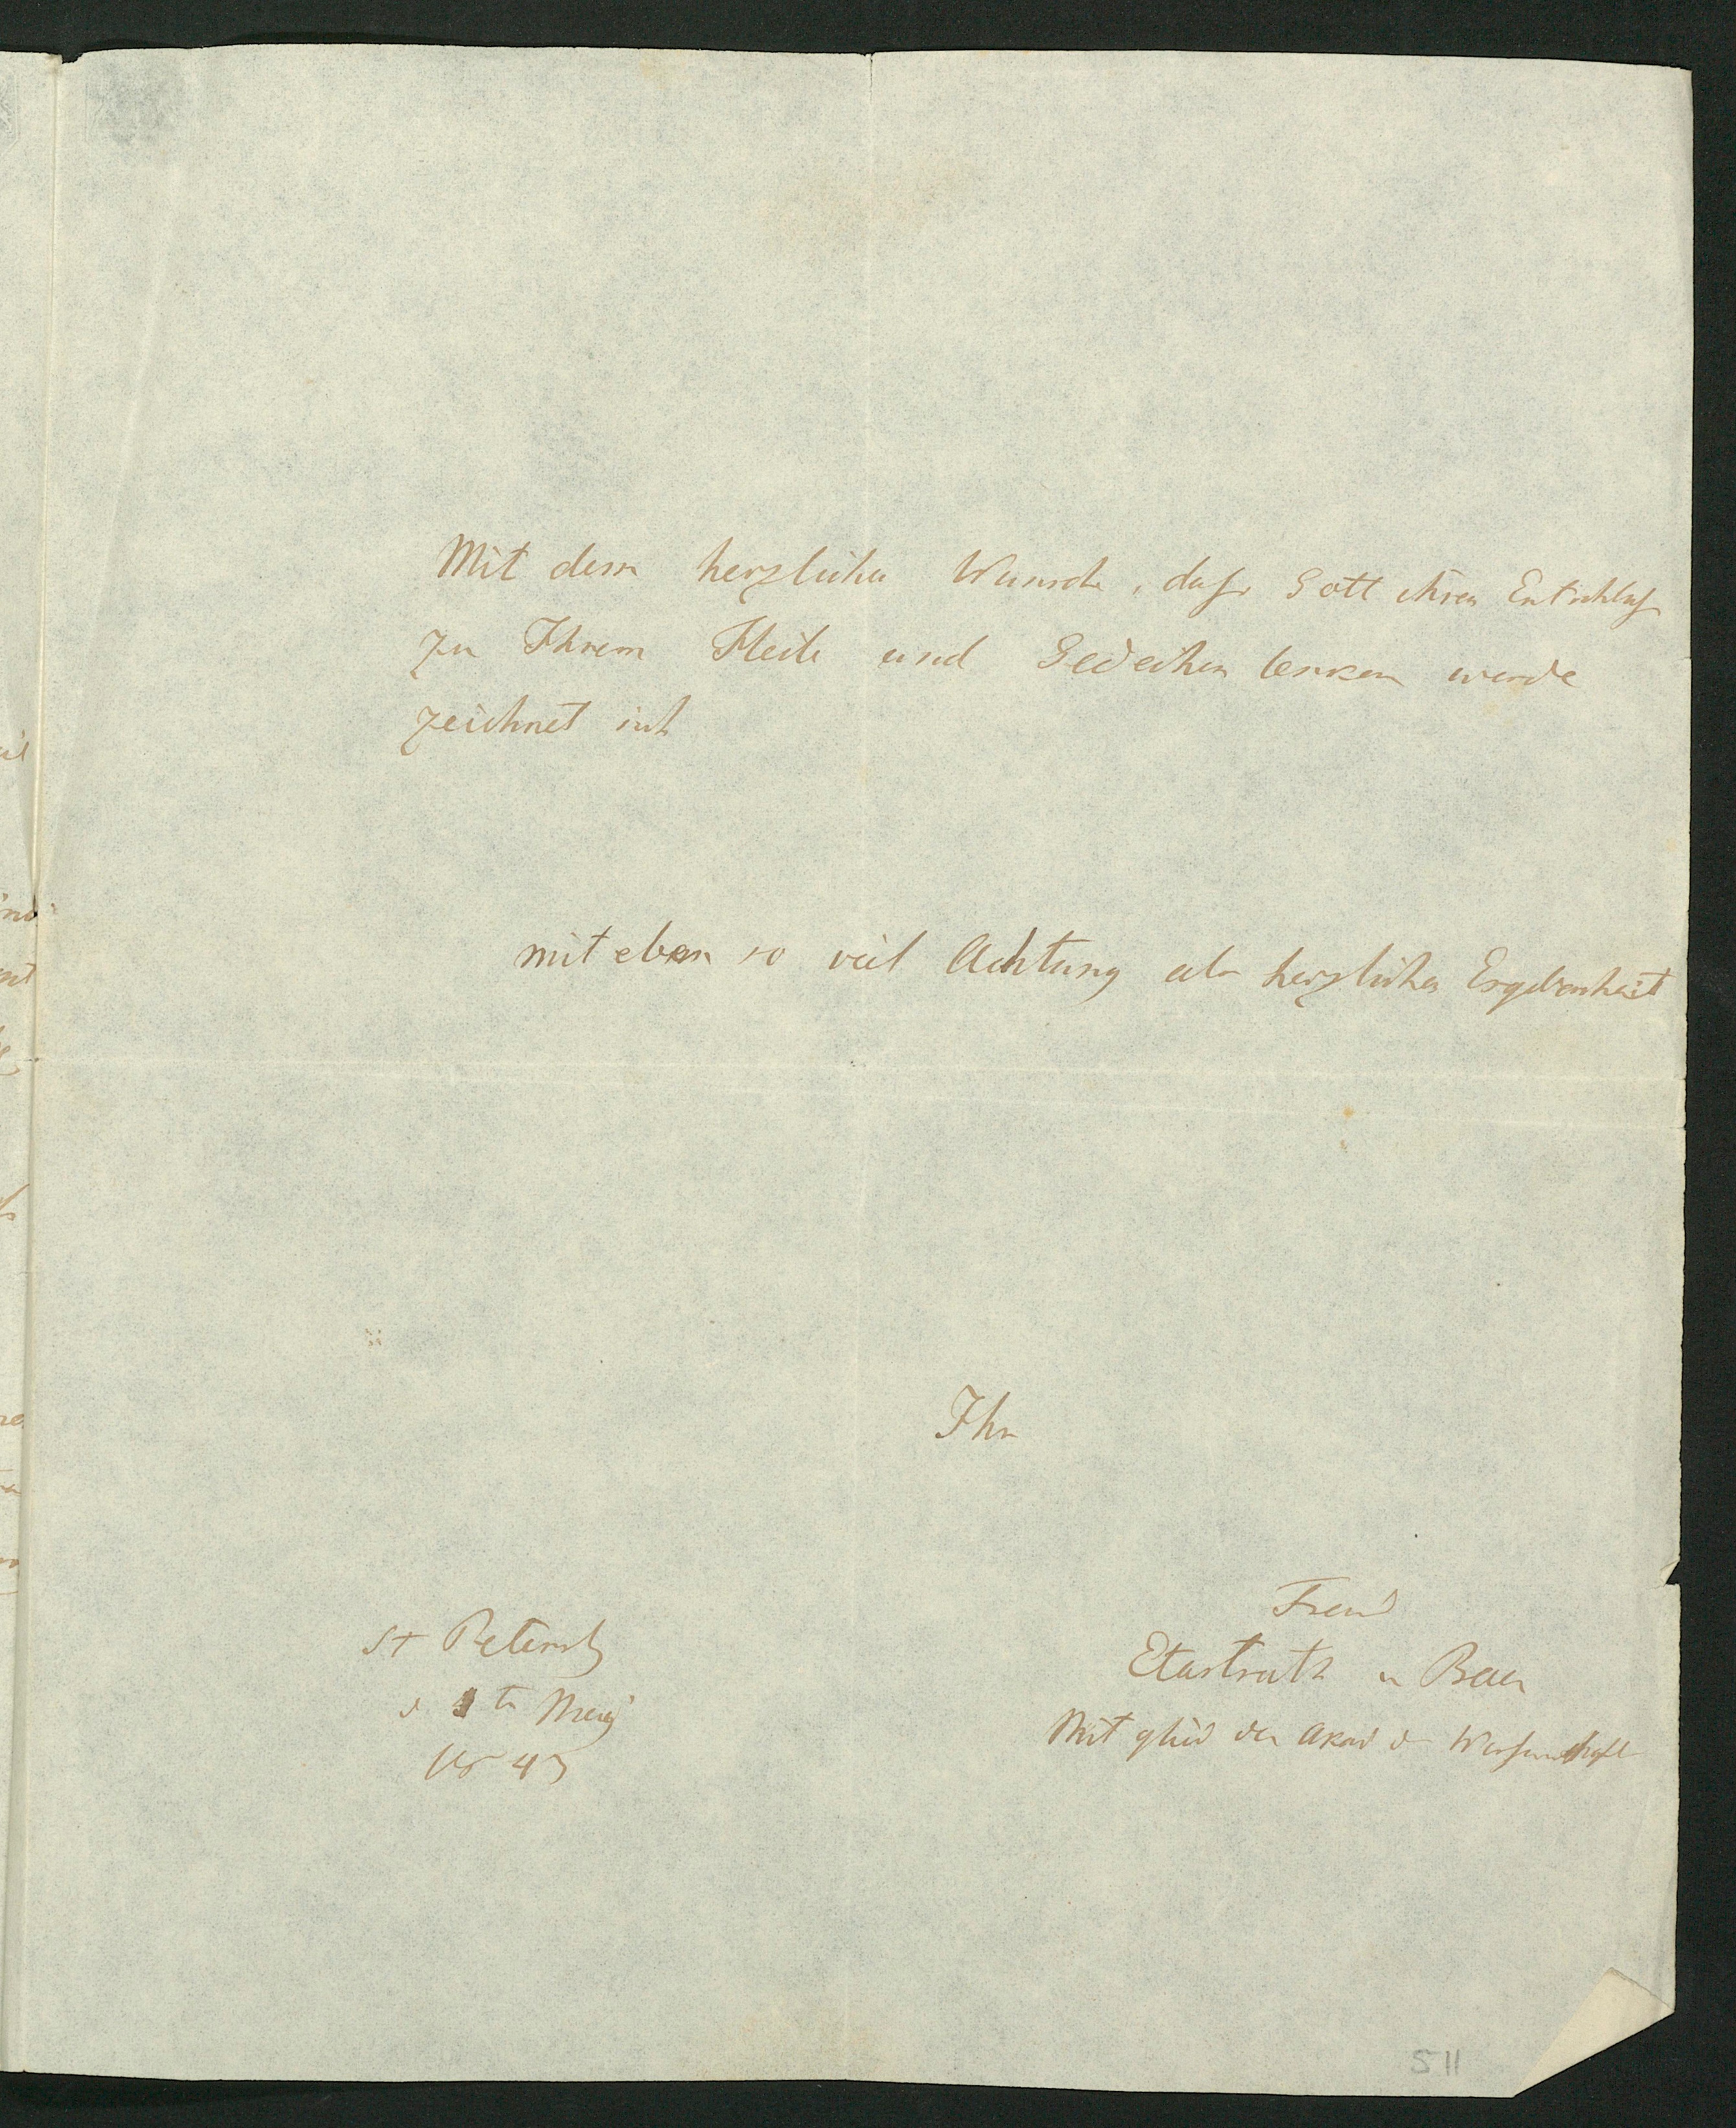 Mit dem herzlichen Wunsche, dass Gott ihren Entschluss
zu Ihrem Heile und Gedeihen lenken werde
zeichnet sich
mit eben so viel Achtung als herzlicher Ergebenheit
Ihr
Freund
St Petersb
d ten Maj
1843
Etastrath v Baer
Mitglied der Akad d Wissenschaft
511